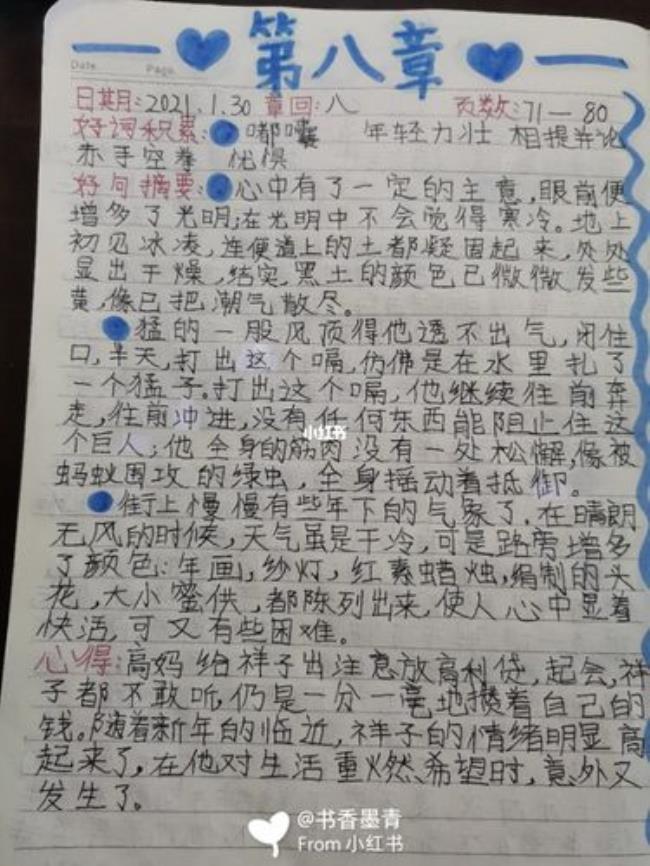 第八章
Date Page
日期:2021.1.30 章回:八 页数:71—80
好词积累: 嘟囔 年轻力壮 相提并论
赤手空拳 忧惧
好句摘要: 心中有了一定的主意,眼前便
增多了光明;在光明中不会觉得寒冷。地上
初见冰凌,连便道上的土都凝固起来,处处
显出干燥,结实,黑土的颜色已微微发些
黄,像已把潮气散尽。
猛的一股风顶得他透不出气,闭住
口,半天,打出这个嗝,仿佛是在水里扎了
一个猛子。打出这个嗝,他继续往前奔
走,往前冲进,没有任何东西能阻止住这
个巨人;他全身的筋肉没有一处松懈,像被
蚂蚁围攻的绿虫,全身摇动着抵御。
街上慢慢有些年下的气象了。在晴朗
无风的时候,天气虽是干冷,可是路旁增多
了颜色:年画,纱灯,红素蜡烛,绢制的头
花,大小蜜供,都陈列出来,使人心中显着
快活,可又有些困难。
心得:高妈给祥子出注意放高利贷,起会,祥
子都不敢听,仍是一分一毫地攒着自己的
钱。随着新年的临近,祥子的情绪明显高
起来了,在他对生活重燃希望时,意外又
发生了。
小红书
@书香墨青
From 小红书